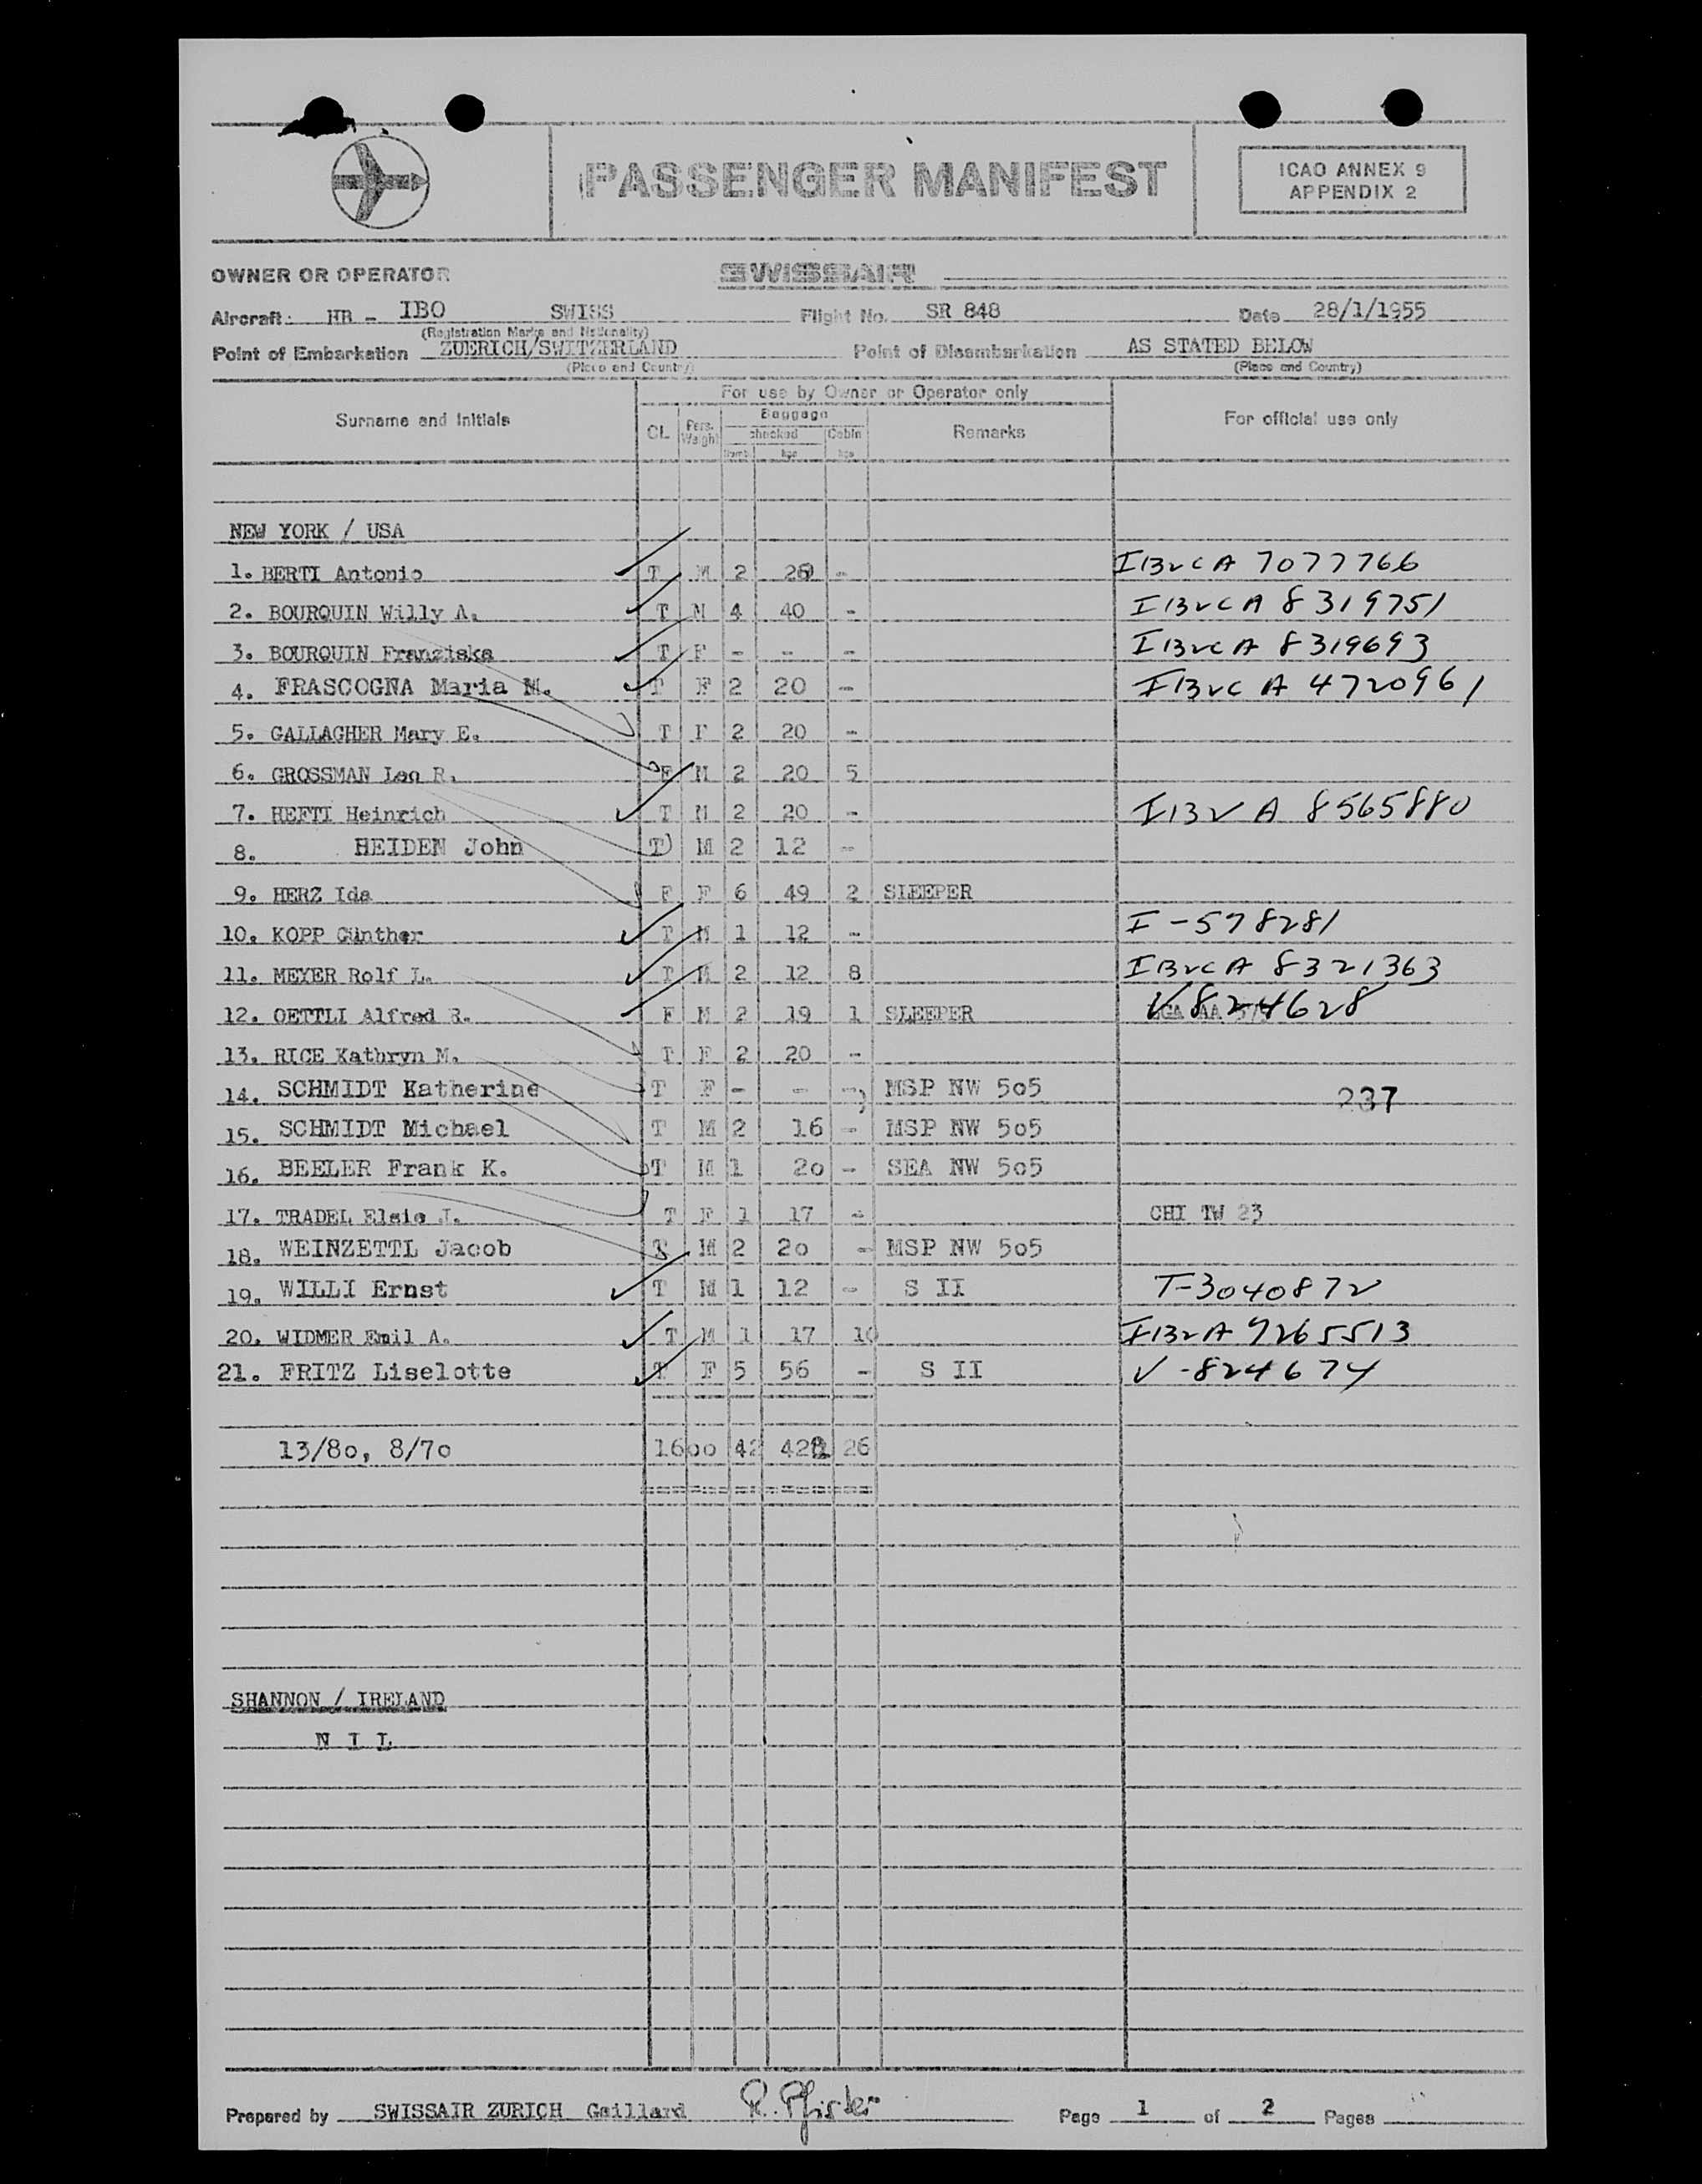 PASSENGER MANIFEST
ICAO ANNEX 9
APPENDIX 2
OWNER OR OPERATOR SWISSAIR
Aircraft: HB - IBO SWISS Flight No. SR 848 Date 28/1/1955
(Registration Marks and Nationality)
Point of Embarkation ZUERICH/SWITZERLAND Point of Disembarkation AS STATED BELOW
(Place and Country) (Place and Country)
For use by Owner or Operator only
Surname and initials CL. Pers. Weight Baggage checked Cabin Remarks For official use only
Numb. kgs kgs
NEW YORK / USA
1. BERTI Antonio T M 2 - IBVCA 7077766
2. BOURQUIN Willy A. T M 4 40 - IBVCA 8319751
3. BOURQUIN Franziska T F - - - IBVCA 8319693
4. FRASCOGNA Maria M. T F 2 20 - IBVC A 4720961
5. GALLAGHER Mary E. T F 2 20 -
6. GROSSMAN Leo R. F M 2 20 5
7. HEFTI Heinrich T M 2 20 - IBV A 8565880
8. HEIDEN John T M 2 12 -
9. HERZ Ida F F 6 49 2 SLEEPER
10. KOPP Günther T M 1 12 - I-578281
11. MEYER Rolf L. T M 2 12 8 IBVCA 8321363
12. OETTLI Alfred R. F M 2 19 1 SLEEPER V 824628
13. RICE Kathryn M. T F 2 20 -
14. SCHMIDT Katherine T F - - - MSP NW 505 237
15. SCHMIDT Michael T M 2 16 - MSP NW 505
16. BEELER Frank K. T M 1 20 - SEA NW 505
17. TRADEL Elsie J. T F 1 17 - CHI TW 23
18. WEINZETTL Jacob T M 2 20 - MSP NW 505
19. WILLI Ernst T M 1 12 - S II T-3040872
20. WIDMER Emil A. T M 1 17 10 IBVA 9265513
21. FRITZ Liselotte T F 5 56 - S II V-824674
13/80, 8/70 1600 42 26
SHANNON / IRELAND
N I L
Prepared by SWISSAIR ZURICH Gaillard R. Pfister Page 1 of 2 Pages